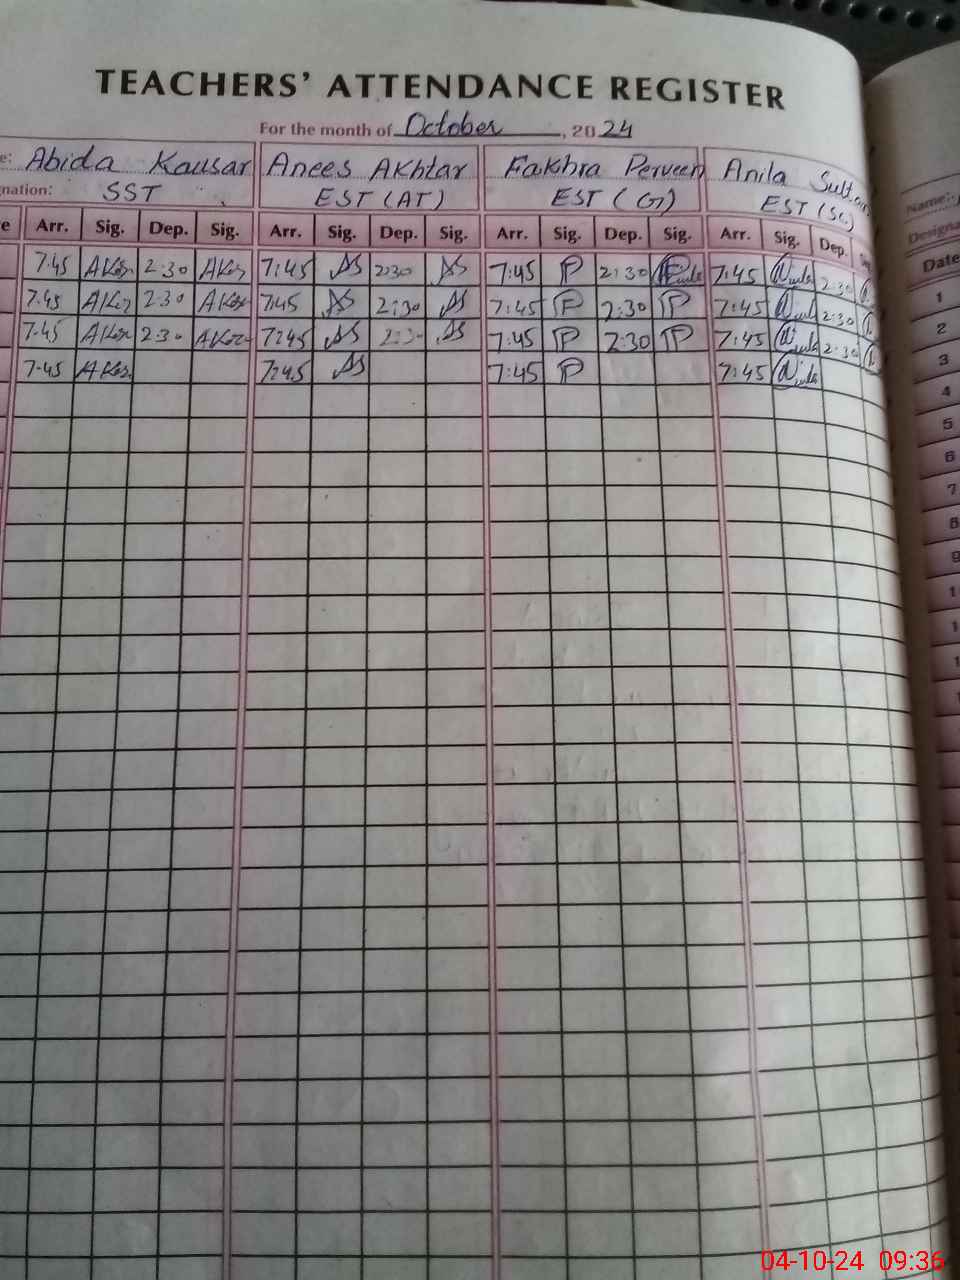 TEACHERS' ATTENDANCE REGISTER
For the month of October, 2024
e: Abida Kausar Anees Akhtar Fakhra Perveen Anila Sultan
gnation: SST EST (AT) EST (G) EST (SC)
e Arr. Sig. Dep. Sig. Arr. Sig. Dep. Sig. Arr. Sig. Dep. Sig. Arr. Sig. Dep.
7.45 2:30 7:45 2:30 7:45 P 2:30 7:45 2:30
7.45 2:30 7:45 2:30 7:45 P 2:30 P 7:45 2:30
7.45 2:30 7:45 2:30 7:45 P 2:30 P 7:45 2:30
7.45 7:45 7:45 P 7:45
Name:
Designa
Date
1
2
3
4
5
6
7
8
9
1
1
1
04-10-24 09:36